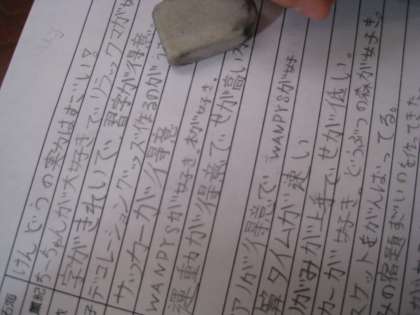 けんどうの実力はすごい?
ちーちゃんが大好きでリラックマが
字がきれいで、習字が得意
デコレーショングッズ作るのが
サッカーが得意
WANPYSが好き。
運動が得意でせが高い
が得意でWANPYSが好
算タイムが速い
がみが上手でせが低い。
カーが好き。どうぶつの森が好き。
スケットをがんばってる。
みの宿題すごいのを作